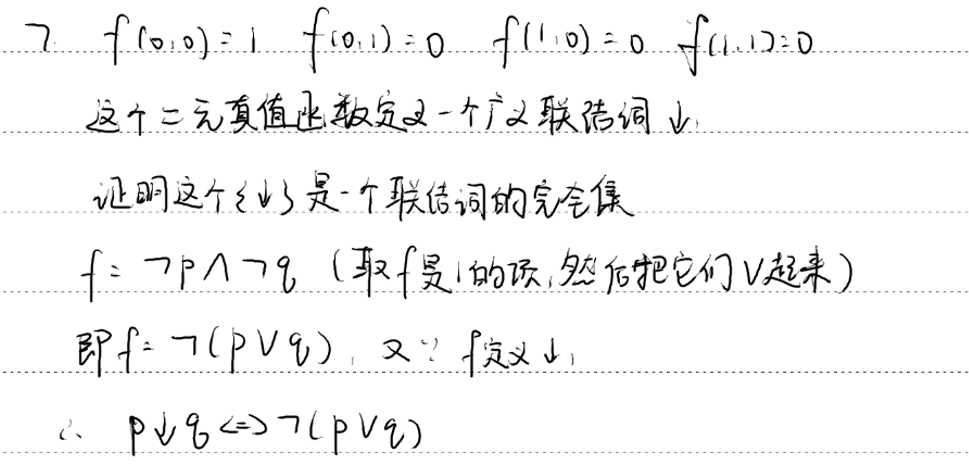 7. f(0,0)=1 f(0,1)=0 f(1,0)=0 f(1,1)=0
这个二元真值函数定义一个广义联结词↓,
证明这个{↓}是一个联结词的完全集
f = ¬p∧¬q (取f是1的项,然后把它们∨起来)
即f = ¬(p∨q), 又∵ f定义↓,
∴ p↓q <=> ¬(p∨q)